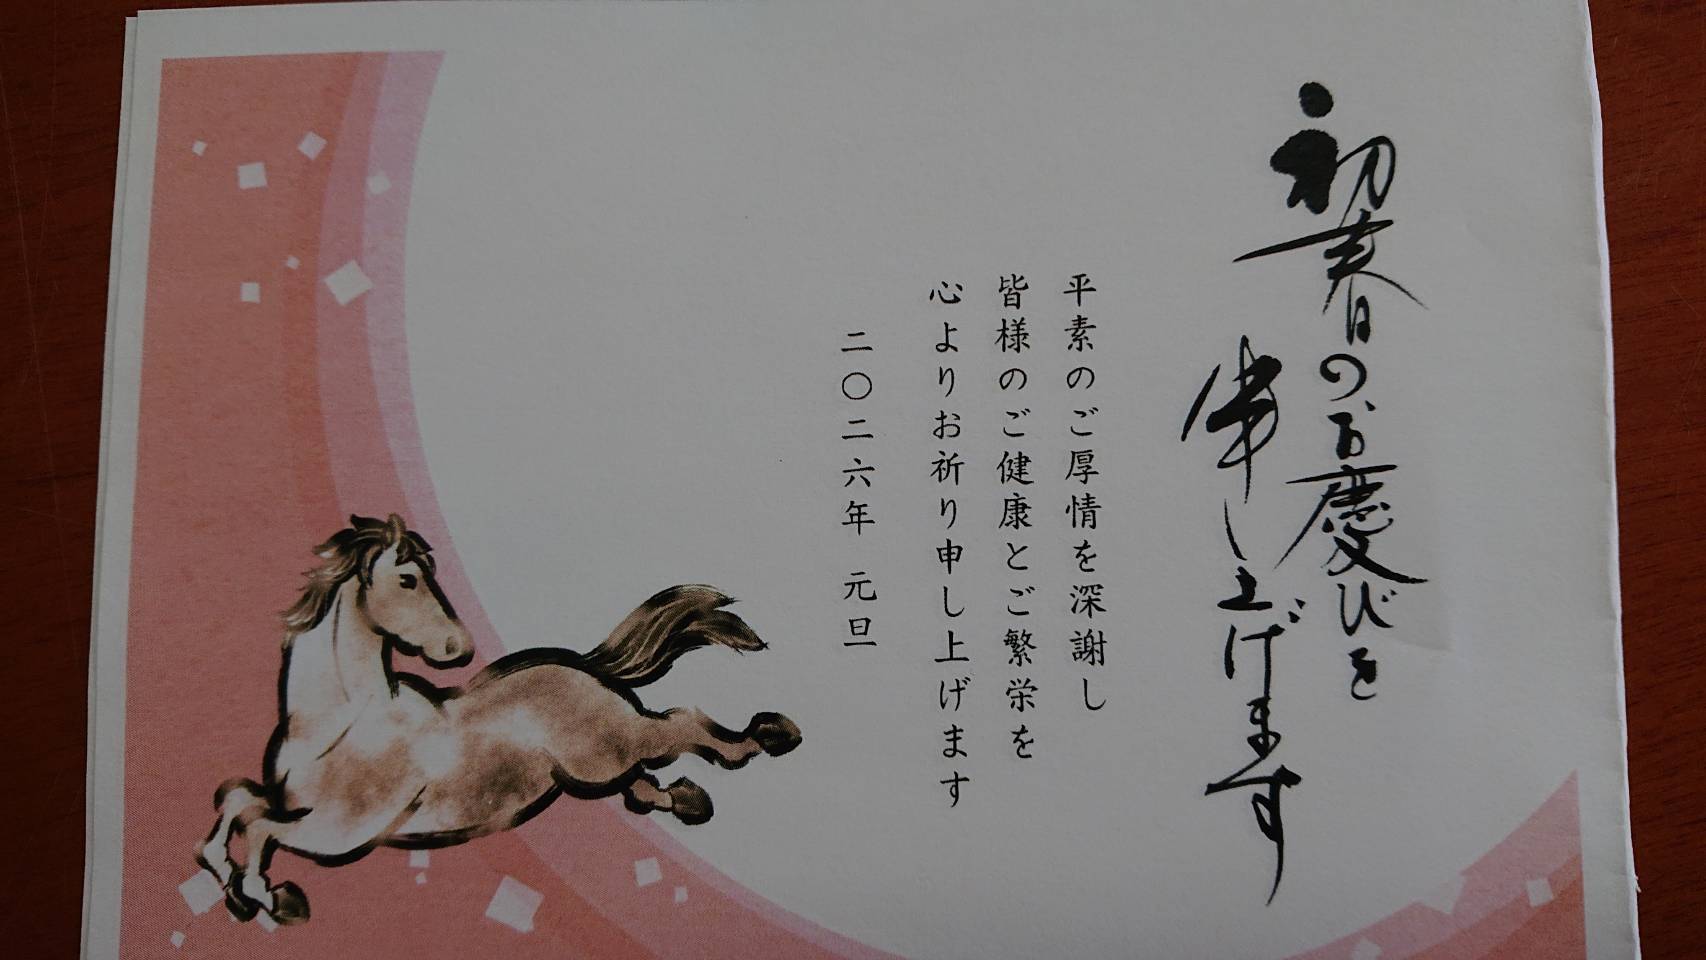 初春のお慶びを
申し上げます
平素のご厚情を深謝し
皆様のご健康とご繁栄を
心よりお祈り申し上げます
二〇二六年 元旦